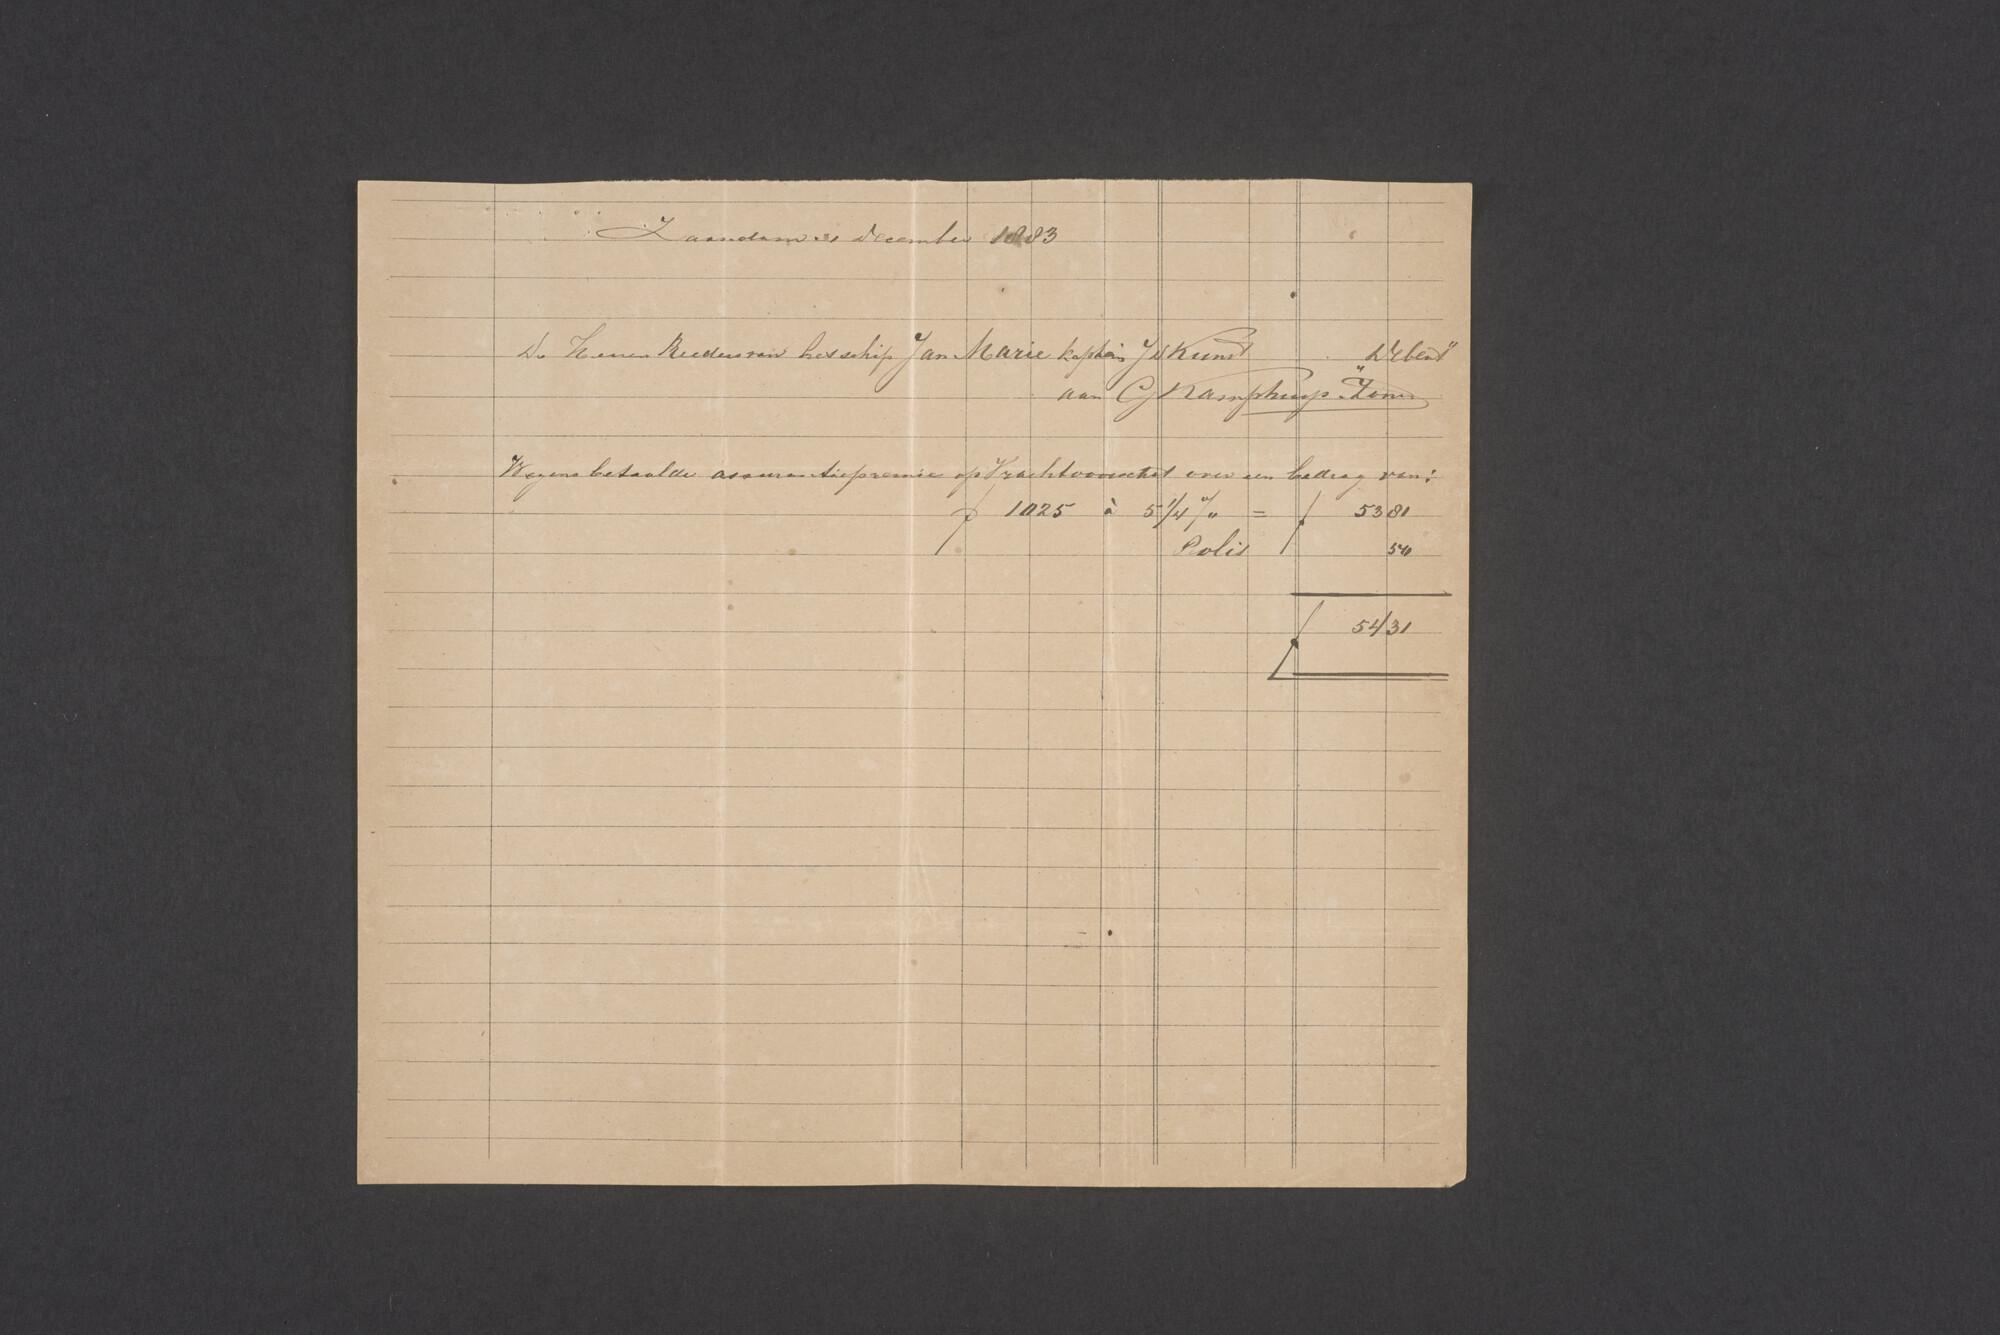 Zaandam 31 December 1883
De Heeren Reeders van het schip Jan Marie kaptein J H Kunst Debent
aan C J Kamphuijs Zoonen
Wegens betaalde assurantiepremie op Vrachtvoorschot over een bedrag van:
ƒ 1025 à 5 1/4 % = ƒ 53 81
Polis 50
ƒ 54 31